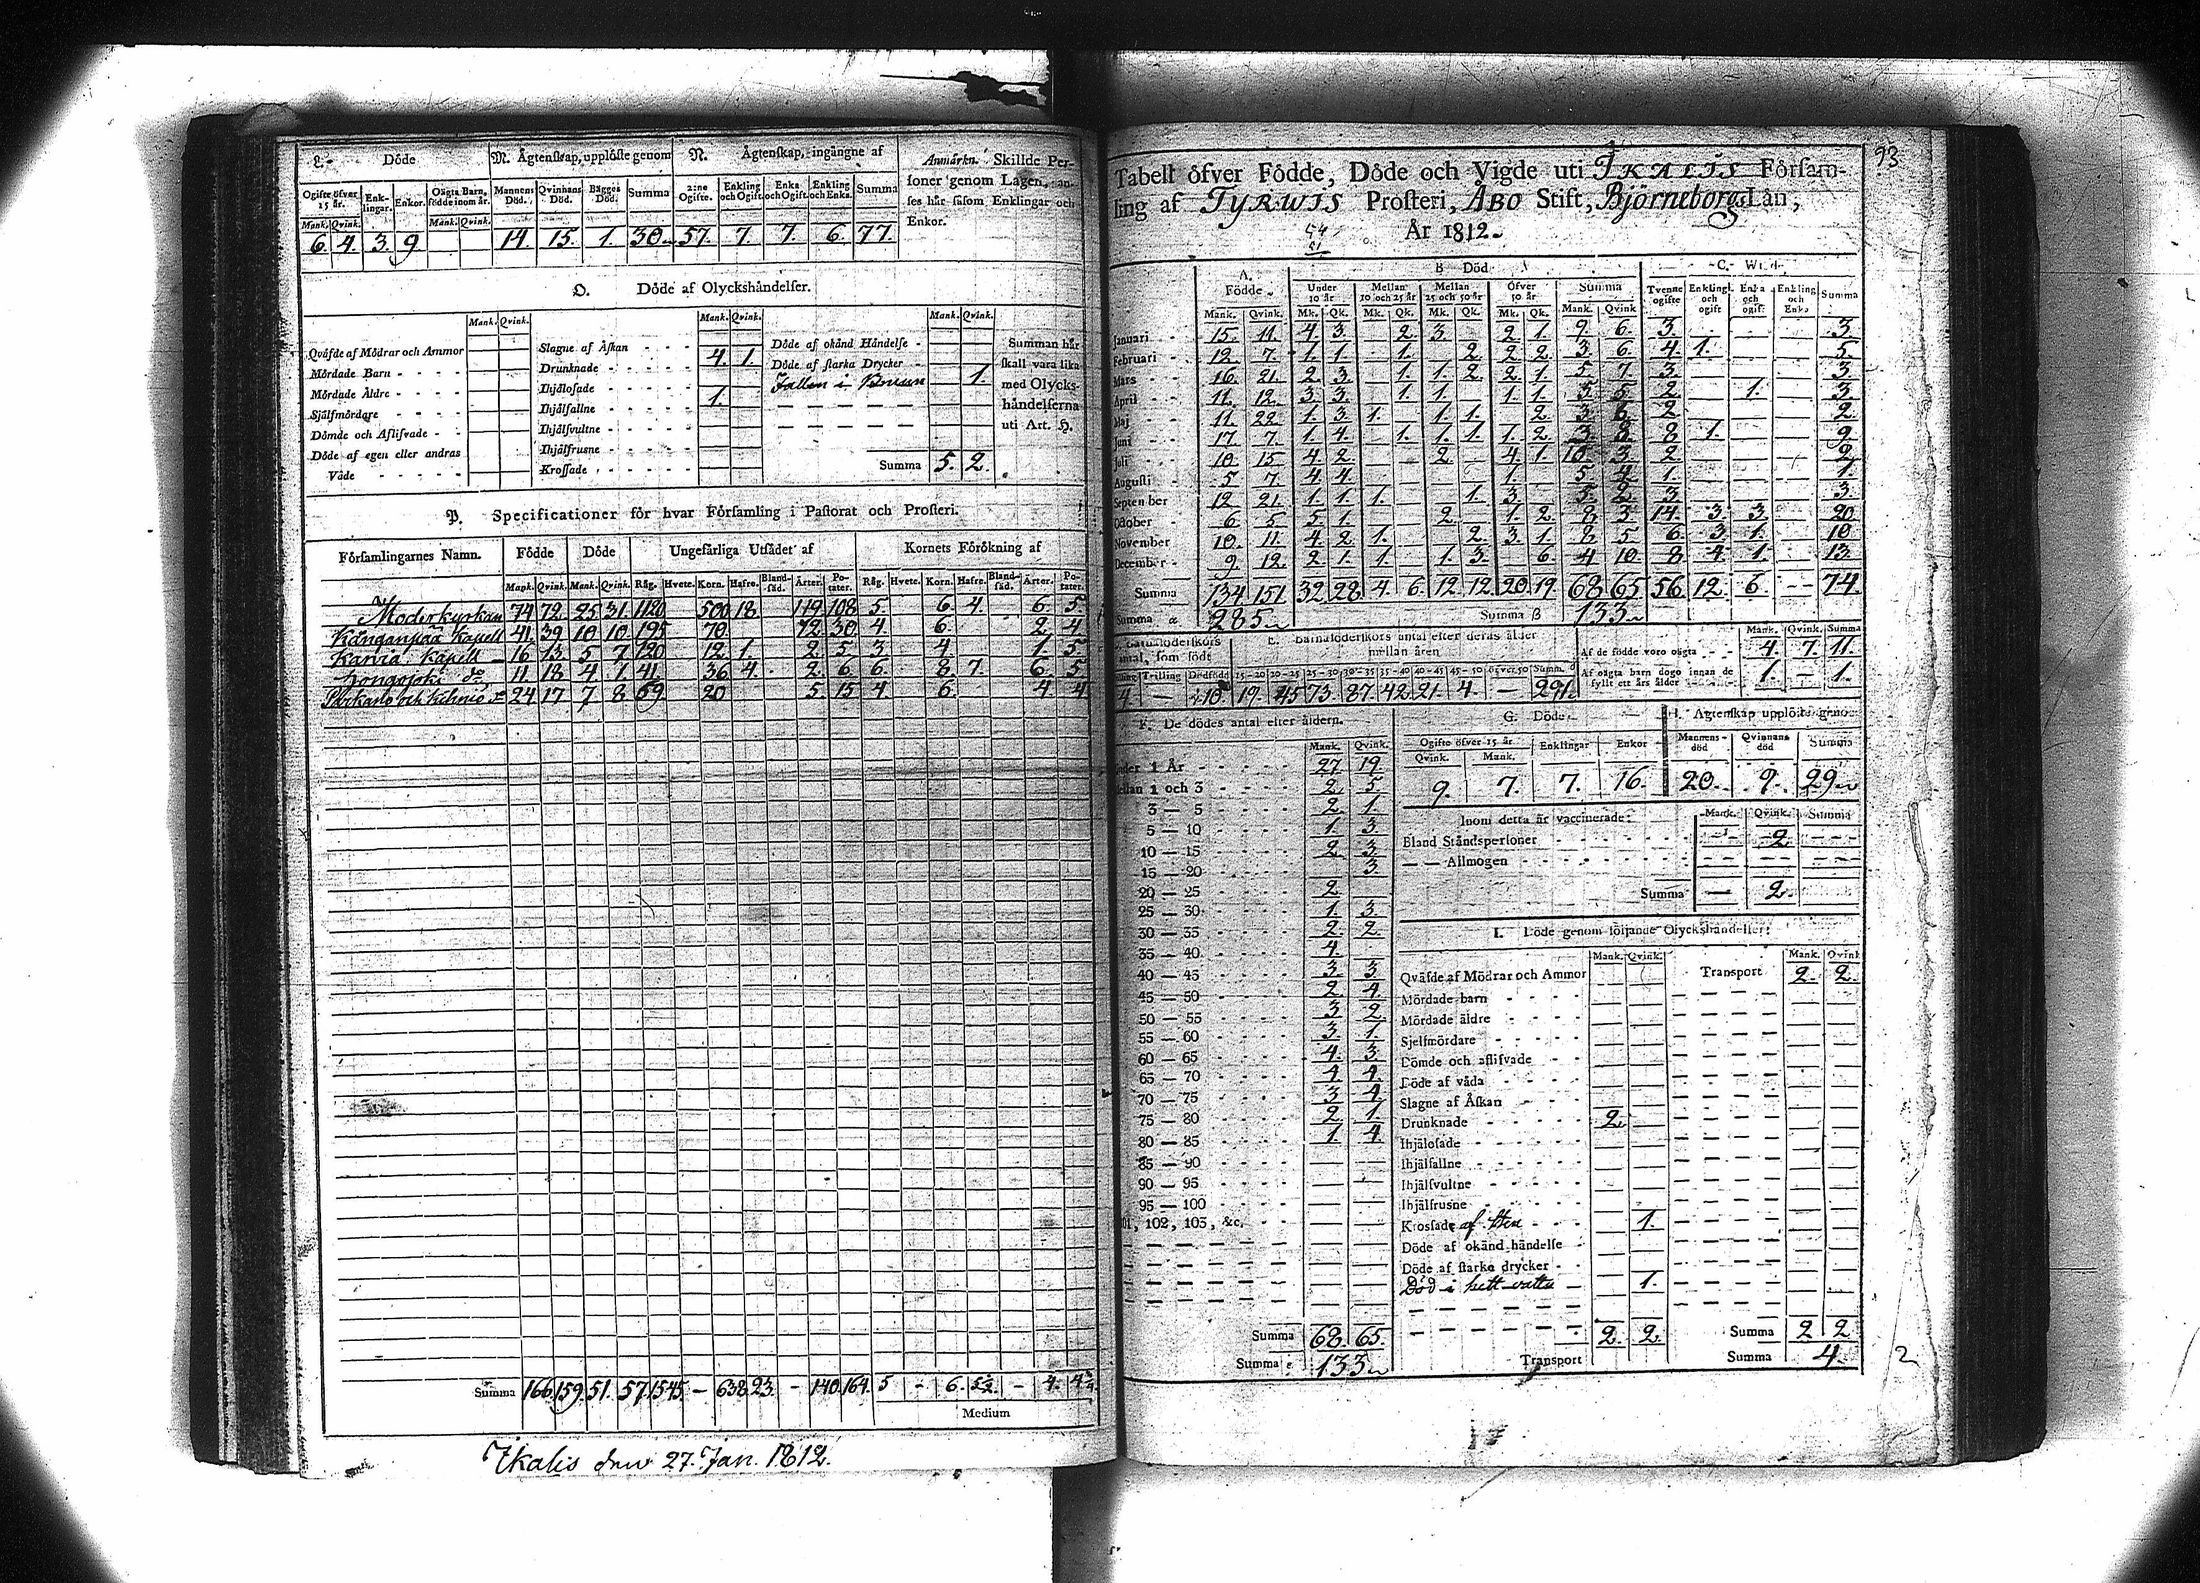 L. Döde
M. Ägtenskap, uplöste genom
N. Ägtenskap, ingångne af
Anmärkn. Skillde Per-
soner genom Lagen, an-
ses här såsom Enklingar och
Enkor.
Ogifte öfver 15 år. Enk-lingar. Enkor. Oägta Barn, födde inom år. Mannens Död. Qvinnans Död. Bägges Död. Summa 2:ne Ogifte. Enkling och Ogift. Enka och Ogift. Enkling och Enka. Summa
Mank. Qvink. Mank. Qvink.
6. 4. 3. 9 14. 15. 1. 30. 57. 7. 7. 6. 77.
O. Döde af Olyckshändelser.
Mank. Qvink. Mank. Qvink. Mank. Qvink.
Qväfde af Mödrar och Ammor
Mördade Barn
Mördade Äldre
Själfmördare
Dömde och Aflifvade
Döde af egen eller andras
Våde
Slagne af Åskan
Drunknade 4. 1.
Ihjälosade
Ihjälfallne 1.
Ihjälsvultne
Ihjälfrusne
Krossade
Döde af okänd Händelse
Döde af starka Drycker
Fallen i Brunn 1.
Summa 5. 2.
Summan här
skall vara lika
med Olycks-
händelserna
uti Art. H.
P. Specificationer för hvar Församling i Pastorat och Prosteri.
Församlingarnes Namn. Födde Döde Ungefärliga Utsädet af Kornets Förökning af
Mank. Qvink. Mank. Qvink. Råg. Hvete. Korn. Hafre. Bland-säd. Ärter. Po-tater. Råg. Hvete. Korn. Hafre. Bland-säd. Ärter. Po-tater.
Moderkyrkan 74 72. 25 31. 1120 500 18. 119 108 5. 6. 4. 6. 5.
Kanganpää Kapell 41. 39 10 10. 195 70. 12. 30. 4. 6. 2. 4.
Karvia Kapell 16 13. 5 7 120 12 1. 2. 5. 3. 4. 1. 5.
Hongojoki do 11 18 4. 1. 41. 36 4. 2. 6 6. 8. 7. 6. 5
Parkano och Kihniö do 24 17 7 8 69 20 5. 15 4. 6. 4. 4
Summa 166. 159. 51. 57. 1545. - 638. 23. - 140. 164. 5 - 6. - 4.
Medium
Ikalis den 27. Jan. 1812.
93
Tabell öfver Födde, Döde och Vigde uti IKALIS Försam-
ling af TYRWIS Prosteri, ÅBO Stift, Björneborgs Län,
År 1812.
A. Födde B. Död C. Wigde
Under 10 år Mellan 10 och 25 år Mellan 25 och 50 år Öfver 50 år Summa Tvenne ogifte Enkling och ogift Enka och ogift Enkling och Enka Summa
Mank. Qvink. Mk. Qk. Mk. Qk. Mk. Qk. Mk. Qk. Mank. Qvink
Januari 15. 11. 4 3. 2. 3. 2 1. 9. 6. 3. 3
Februari 12. 7. 1. 1. 1. 2. 2 2. 3. 6. 4. 1. 5.
Mars 16. 21. 2. 3. 1. 1. 2. 2 1. 5 7. 3. 3
April 11. 12. 3. 3. 1. 1. 1. 1. 5. 5. 2. 1. 3.
Maj 11. 22. 1. 3. 1. 1. 1. 2. 3. 6. 2. 2.
Juni 17. 7. 1. 4. 1. 1. 1. 1. 2. 3. 8. 8 1. 9.
Juli 10. 15. 4 2. 2. 4. 1. 10. 3. 2. 2.
Augusti 5. 7. 4. 4. 1. 5 4. 1. 1.
September 12. 21. 1. 1. 1. 1. 3. 5. 2. 3. 3.
October 6. 5. 5. 1. 2. 1. 2. 8. 3 14. 3. 3. 20
November 10. 11. 4. 2. 1. 2. 3. 1. 8 5 6. 3. 1. 10
December 9. 12. 2. 1. 1. 1. 3. 6. 4 10. 8. 4. 1. 13.
Summa 134 151. 32 28 4. 6. 12. 12. 20. 19. 68. 65. 56. 12. 6. -- 74.
Summa α 285. Summa β 133.
Barnaföderskors antal efter deras ålder
mellan åren
Trilling Dödfödd 15-20 20-25 25-30 30-35 35-40 40-45 45-50 öfver 50 Summa
4 — 10. 19. 45 73. 87. 42. 21. 4. — 291.
Mank. Qvink. Summa
Af de födde voro oägta 4. 7. 11.
Af oägta barn dogo innan de
fyllt ett års ålder 1. - 1.
F. De dödes antal efter åldern.
Mank. Qvink.
Under 1 År 27. 19.
Mellan 1 och 3 2. 5.
3 — 5 2. 1.
5 — 10 1. 3.
10 — 15 2. 3.
15 — 20 3.
20 — 25 2.
25 — 30 1. 3.
30 — 35 2. 2
35 — 40 4.
40 — 45 3. 3
45 — 50 2 4.
50 — 55 3 2
55 — 60 3. 1.
60 — 65 4. 3
65 — 70 4 4.
70 — 75 3 4
75 — 80 2 1.
80 — 85 1. 4.
85 — 90
90 — 95
95 — 100
101, 102, 103, &c.
Summa 68. 65.
Summa 133.
G. Döde
Ogifte öfver 15 år Enklingar Enkor
Qvink. Mank.
9. 7. 7. 16.
H. Ägtenskap upplöste genom
Mannens död Qvinnans död Summa
20. 9. 29.
Inom detta år vaccinerade: Mank. Qvink. Summa
Bland Ståndspersoner 2.
— — Allmogen
Summa — 2.
I. Döde genom följande Olyckshändelser:
Mank. Qvink. Mank. Qvink
Qväfde af Mödrar och Ammor
Mördade barn
Mördade äldre
Sjelfmördare
Dömde och aflifvade
Döde af våda
Slagne af Åskan
Drunknade 2.
Ihjälosade
Ihjälfallne
Ihjälsvultne
Ihjälfrusne
Krossade af sten 1.
Döde af okänd händelse
Döde af starka drycker
Död i hett vatten 1.
2. 2.
Transport
Transport 2. 2.
Summa 2 2
Summa 4.
2